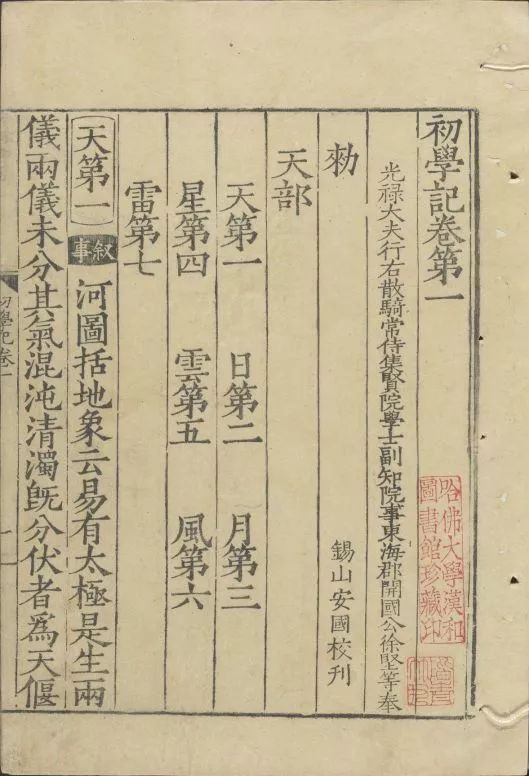 初學記卷第一
光祿大夫行右散騎常侍集賢院學士副知院事東海郡開國公徐堅等奉
勑
錫山安國校刊
天部
天第一 日第二 月第三
星第四 雲第五 風第六
雷第七
天第一 叙事 河圖括地象云易有太極是生兩
儀兩儀未分其氣混沌清濁旣分伏者爲天偃
初學記卷一
哈佛大學漢和
圖書館珍藏印